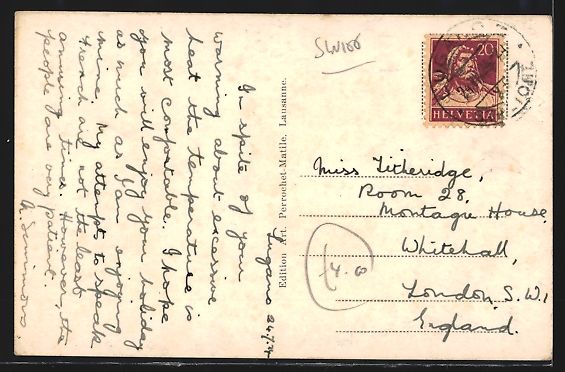 SW100
20
HELVETIA
Lugano 24.7.
In spite of your
warning about excessive
heat the temperature is
most comfortable. I hope
you will enjoy your holiday
as much as I am enjoying
mine. My attempts to speak
French are not the least
amusing times. However, the
people are very patient.
Simmons.
Edition Art. Perrochet-Matile, Lausanne.
Miss Titheridge,
Room 28,
Montague House,
Whitehall,
London, S.W.1
England.